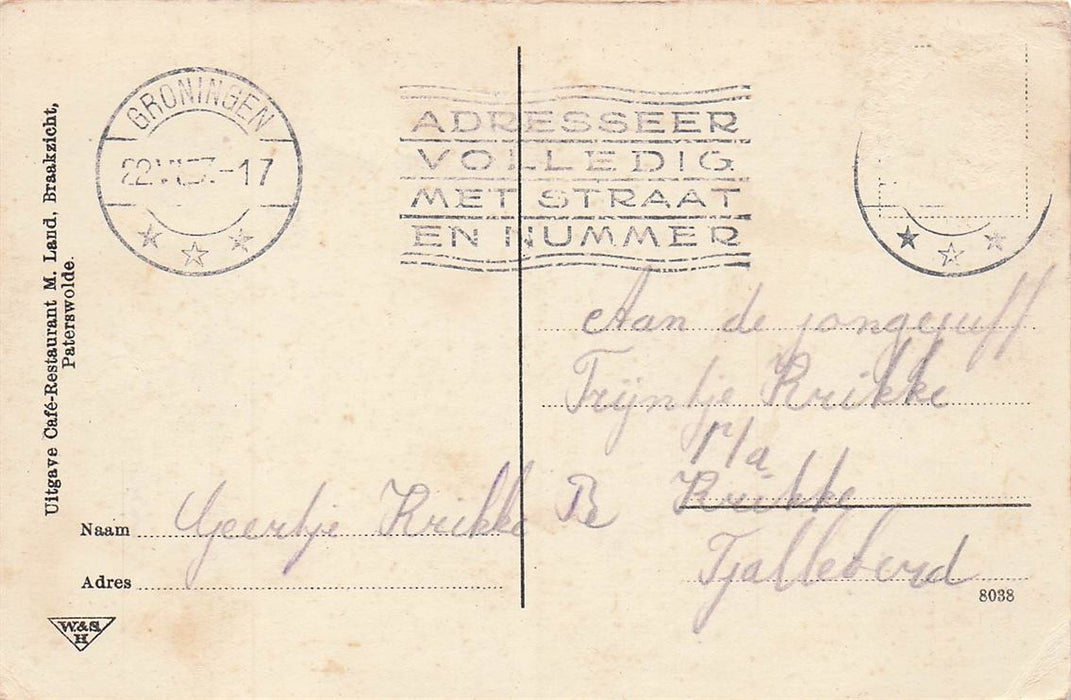 Uitgave Café-Restaurant M. Land, Braakzicht,
Paterswolde.
GRONINGEN
-17
ADRESSEER
VOLLEDIG
MET STRAAT
EN NUMMER
Aan de jongejuff
Trijntje Krikke
p/a
B Krikke
Tjalleberd
8038
Naam Geertje Krikke
Adres
W.&S.
H